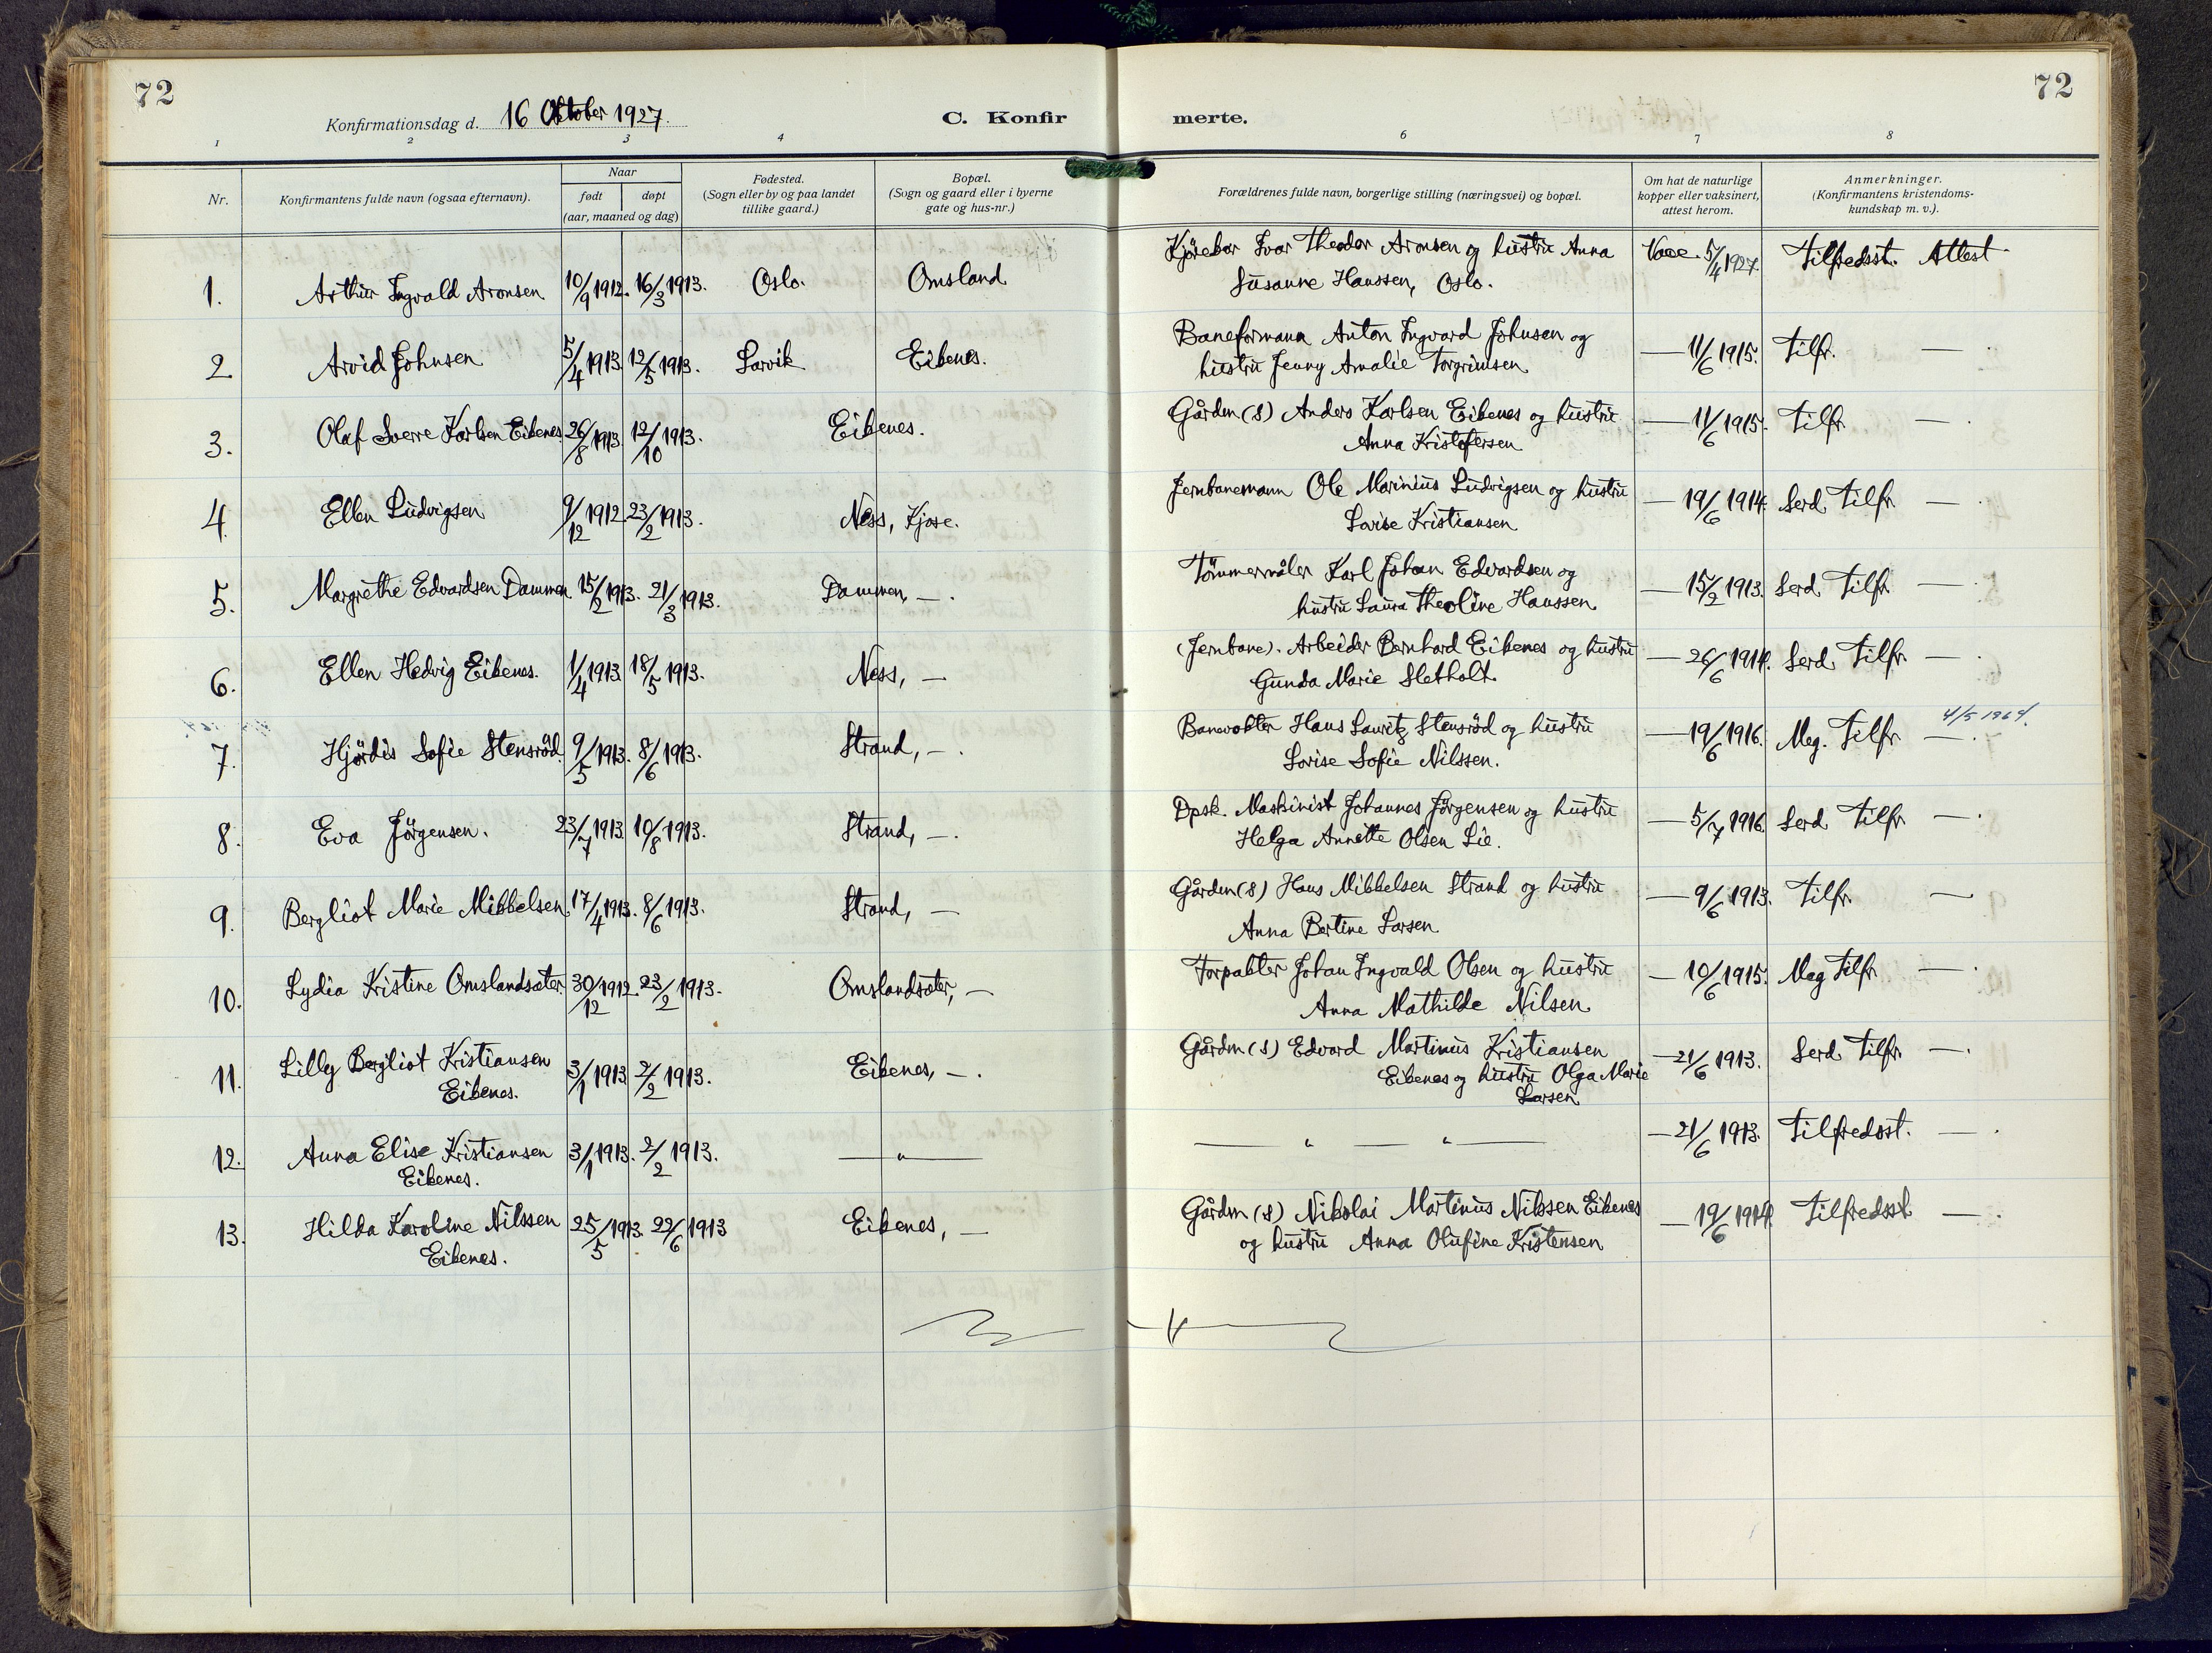 72
72
Konfirmationsdag d. 16 Oktober 1927.
C. Konfirmerte.
1 2 3 4 6 7 8
Nr.
Konfirmantens fulde navn (ogsaa efternavn).
Naar
født døpt
(aar, maaned og dag)
Fødested.
(Sogn eller by og paa landet
tillike gaard.)
Bopæl.
(Sogn og gaard eller i byerne
gate og hus-nr.)
Forældrenes fulde navn, borgerlige stilling (næringsvei) og bopæl.
Om hat de naturlige
kopper eller vaksinert,
attest herom.
Anmerkninger.
(Konfirmantens kristendoms-
kundskap m. v.).
1. Arthur Ingvald Aronsen 10/9 1912. 16/3 1913. Oslo. Omsland Kjørekar Ivar Theodor Aronsen og hustru Anna
Susanne Hanssen, Oslo. Vacc. 5/4 1927. Tilfredsst. Attest
2. Arvid Johnsen 5/4 1913. 12/5 1913. Larvik Eikenes. Baneformann Anton Ingvard Johnsen og
hustru Jenny Amalie Torgrimsen — 11/6 1915. Tilfr. — .
3. Olaf Sverre Karlsen Eikenes 26/8 1913. 12/10 1913. Eikenes. Gårdm (s) Anders Karlsen Eikenes og hustru
Anna Kristofersen — 11/6 1915. Tilfr. — .
4. Ellen Ludvigsen 9/12 1912. 23/2 1913. Ness, Kjose. Jernbanemann Ole Marinius Ludvigsen og hustru
Lovise Kristiansen — 19/6 1914. Serd. Tilfr. — .
5. Margrethe Edvardsen Dammen 15/2 1913. 21/3 1913. Dammen, — . Tømmermåler Karl Johan Edvardsen og
hustru Laura Theoline Hanssen. — 15/2 1913. Serd Tilfr — .
6. Ellen Hedvig Eikenes. 1/4 1913. 18/5 1913. Ness, — (Jernbane). Arbeider Bernhard Eikenes og hustru
Gunda Marie Sletholt. — 26/6 1914. Serd. Tilfr. — .
7. Hjørdis Sofie Stensrød. 9/5 1913. 8/6 1913. Strand, — . Banevokter Hans Lauritz Stensrød og hustru
Lovise Sofie Nilssen. — 19/6 1916. Meg. Tilfr — . 4/5 1964.
8. Eva Jørgensen. 23/7 1913. 10/8 1913. Strand, — . Dpsk. Maskinist Johannes Jørgensen og hustru
Helga Annette Olsen Lie. — 5/7 1916. Serd Tilfr — .
9. Bergliot Marie Mikkelsen 17/4 1913. 8/6 1913. Strand, — Gårdm (s) Hans Mikkelsen Strand og hustru
Anna Bertine Larsen — 9/6 1913. Tilfr. —
10. Lydia Kristine Omslandsæter. 30/12 1912. 23/2 1913. Omslandsæter, — Forpakter Johan Ingvald Olsen og hustru
Anna Mathilde Nilsen — 10/6 1915. Meg Tilfr — .
11. Lilly Bergliot Kristiansen
Eikenes. 3/1 1913. 2/2 1913. Eikenes, — . Gårdm (s) Edvard Martinius Kristiansen
Eikenes og hustru Olga Marie
Larsen — 21/6 1913. Serd Tilfr. — .
12. Anna Elise Kristiansen
Eikenes. 3/1 1913. 2/2 1913. — " — — " — " — — 21/6 1913. Tilfredsst. — .
13. Hilda Karoline Nilssen
Eikenes. 25/5 1913. 22/6 1913 Eikenes, — Gårdm (s) Nikolai Martinius Nilssen Eikenes
og hustru Anna Olufine Kristensen — 19/6 1914. Tilfredsst. — .